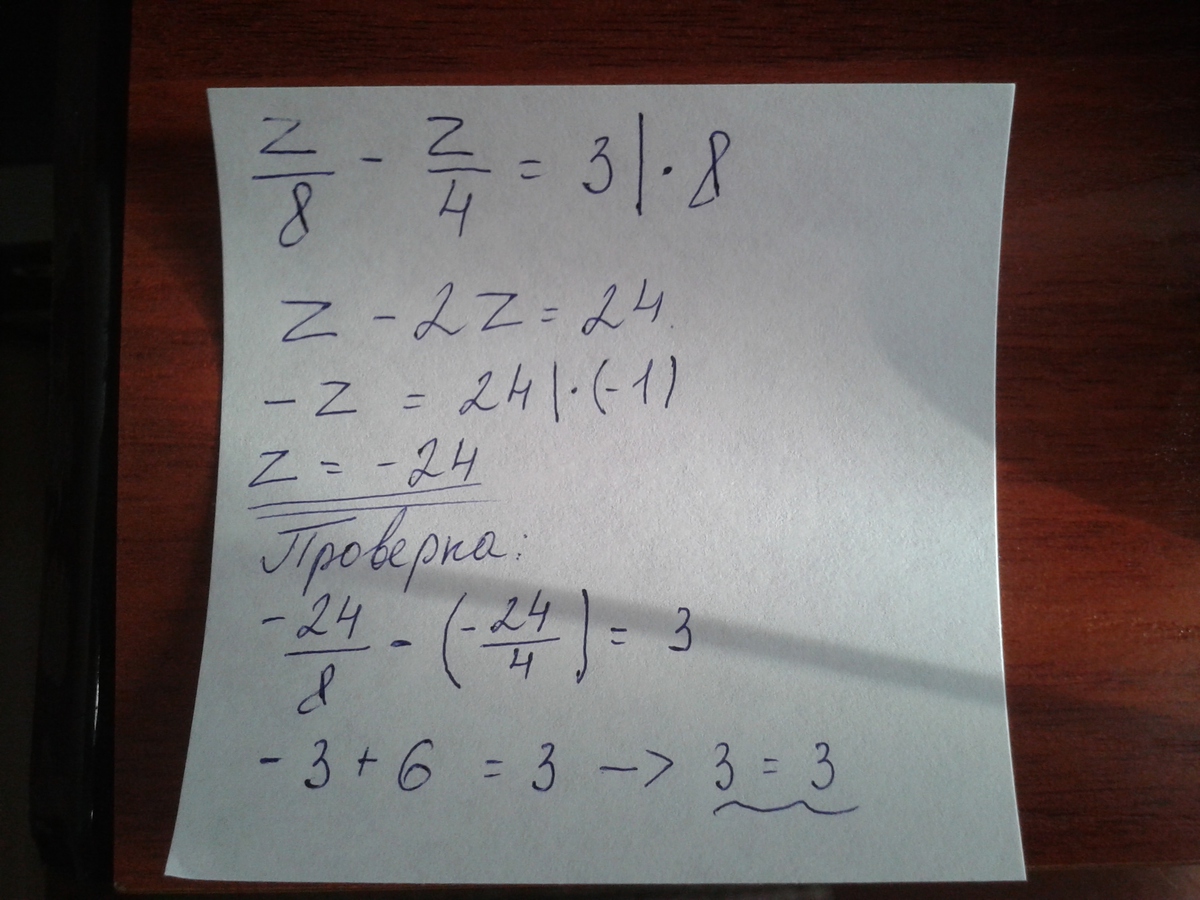 z/8 - z/4 = 3 | · 8
z - 2z = 24
-z = 24 | · (-1)
z = -24
Проверка:
-24/8 - (-24/4) = 3
-3 + 6 = 3 -> 3 = 3